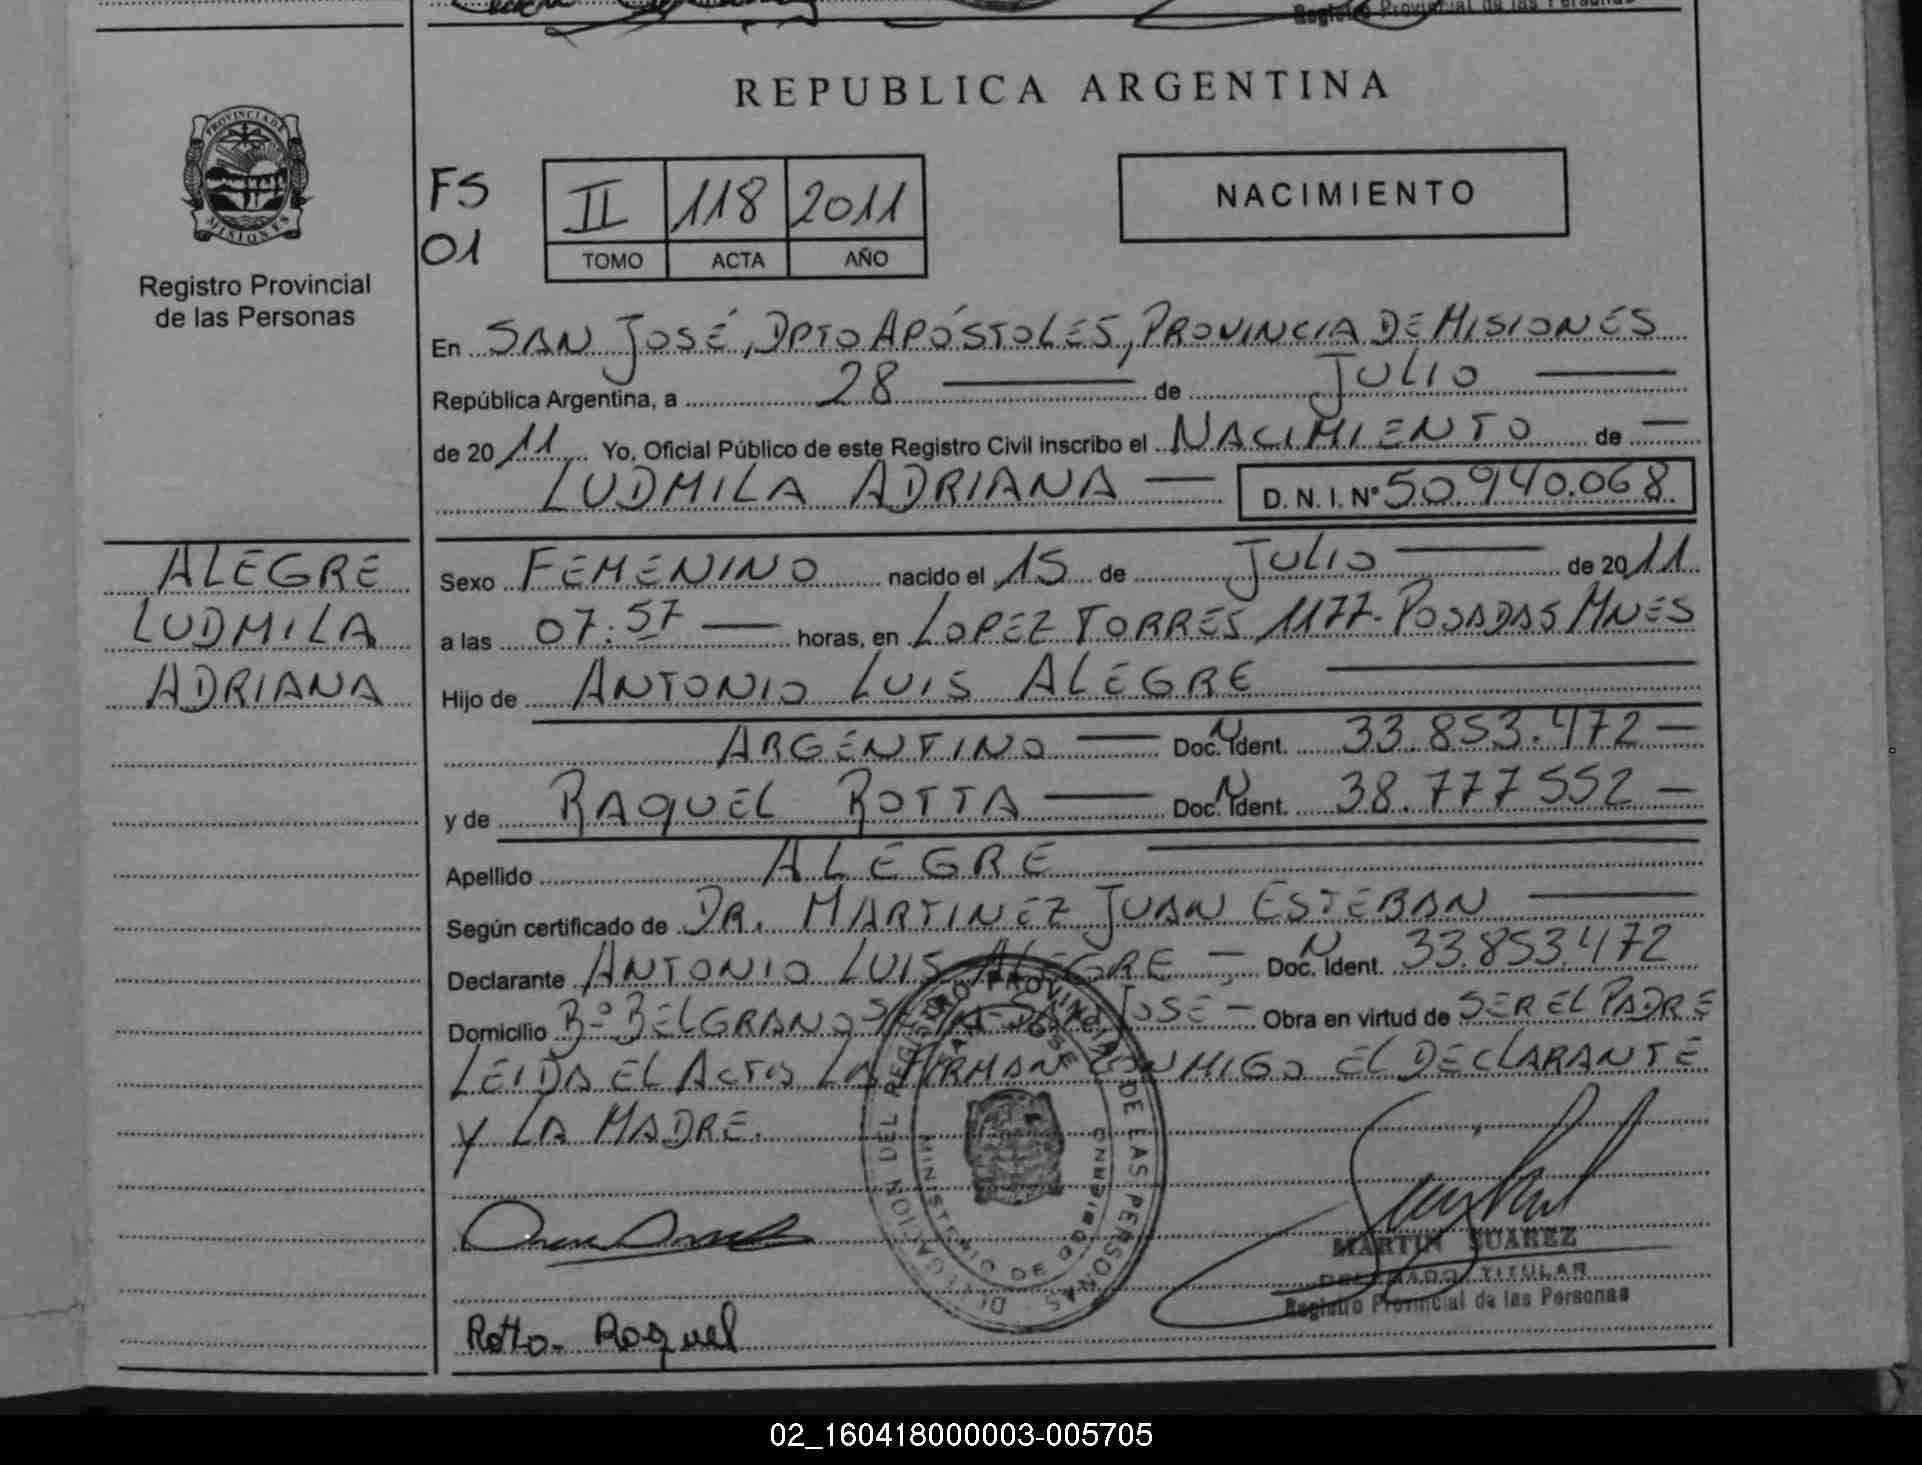 Registro Provincial de las Personas
REPUBLICA ARGENTINA
PROVINCIA DE
MISIONES
Registro Provincial
de las Personas
FS
01
II 118 2011
TOMO ACTA AÑO
NACIMIENTO
En SAN JOSÉ, DPTO APÓSTOLES, PROVINCIA DE MISIONES
República Argentina, a 28 de JULIO
de 2011 Yo, Oficial Público de este Registro Civil inscribo el NACIMIENTO de
LUDMILA ADRIANA D.N.I. Nº 50940.068
ALEGRE
LUDMILA
ADRIANA
Sexo FEMENINO nacido el 15 de JULIO de 2011
a las 07:57 horas, en LOPEZ TORRES 1177- POSADAS MNES
Hijo de ANTONIO LUIS ALEGRE
ARGENTINO Doc. Ident. N 33.853.472
y de RAQUEL ROTTA Doc. Ident. N 38.777552
Apellido ALEGRE
Según certificado de DR. MARTINEZ JUAN ESTEBAN
Declarante ANTONIO LUIS ALEGRE Doc. Ident. N 33.853.472
Domicilio Bº BELGRANO SAN JOSE Obra en virtud de SER EL PADRE
LEIDA EL ACTA LA FIRMAN CONMIGO EL DECLARANTE
Y LA MADRE.
DELEGACION DEL REGISTRO PROVINCIAL DE LAS PERSONAS
SAN JOSE
MINISTERIO DE GOBIERNO
MARTIN SUAREZ
DELEGADO TITULAR
Registro Provincial de las Personas
Rotta Raquel
02_160418000003-005705